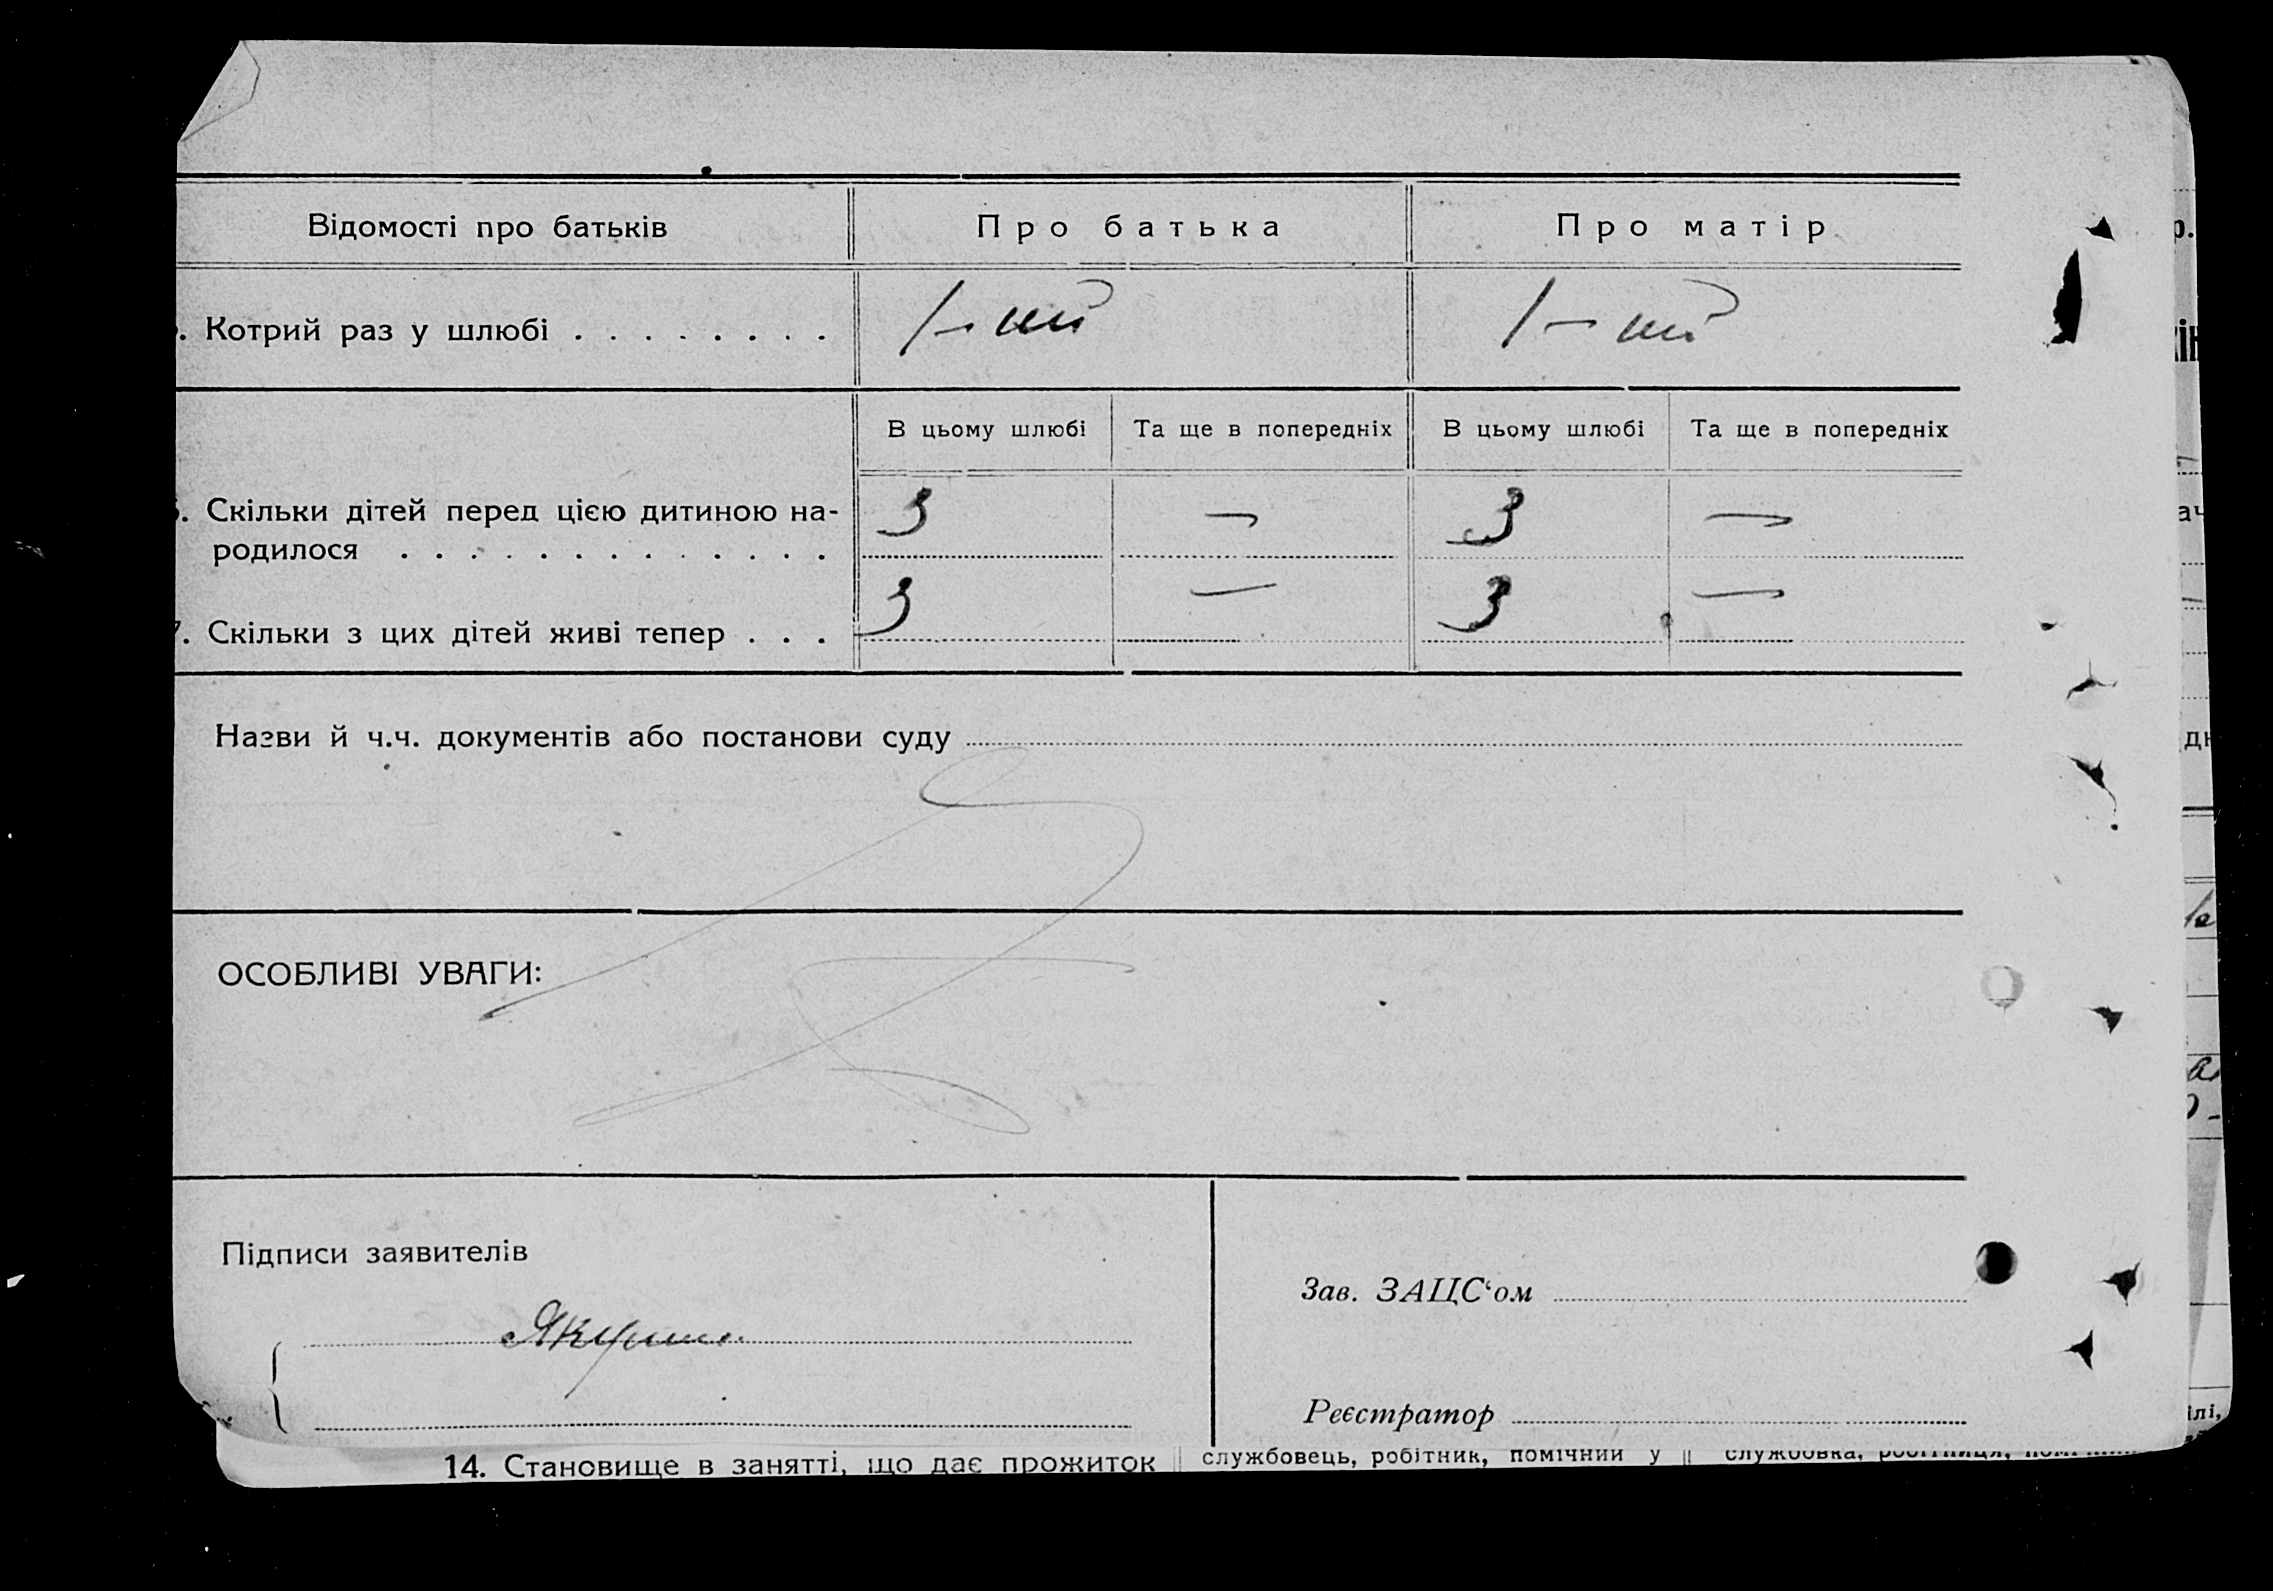 Відомості про батьків Про батька Про матір
. Котрий раз у шлюбі . . . . . . . . 1-ий 1-ий
В цьому шлюбі Та ще в попередніх В цьому шлюбі Та ще в попередніх
. Скільки дітей перед цією дитиною на- 3 — 3 —
родилося . . . . . . . . . . . . .
7. Скільки з цих дітей живі тепер . . . 3 — 3 —
Назви й ч.ч. документів або постанови суду
ОСОБЛИВІ УВАГИ:
Підписи заявителів
Зав. ЗАЦС‘ом
Реєстратор
14. Становище в занятті, що дає прожиток службовець, робітник, помічний у службовка, робітниця,